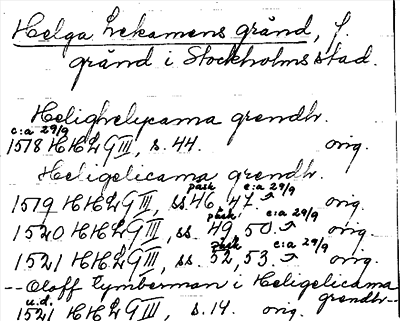 Helga Lekamens gränd, f.
gränd i Stockholms stad.
Helighelycama grendh.
c:a 29/9
1518 HH2 G III, s. 44. orig.
Heligelicama grendh.
påsk c:a 29/9
1519 HH2 G III, ss. 46, 47. orig.
påsk c:a 29/9
1520 HH2 G III, ss. 49, 50. orig.
påsk c:a 29/9
1521 HH2 G III, ss. 52, 53. orig.
-- Oloff Tymberman i Heligelicama
grendh --
u.d.
1521 HH2 G III, s. 14. orig.